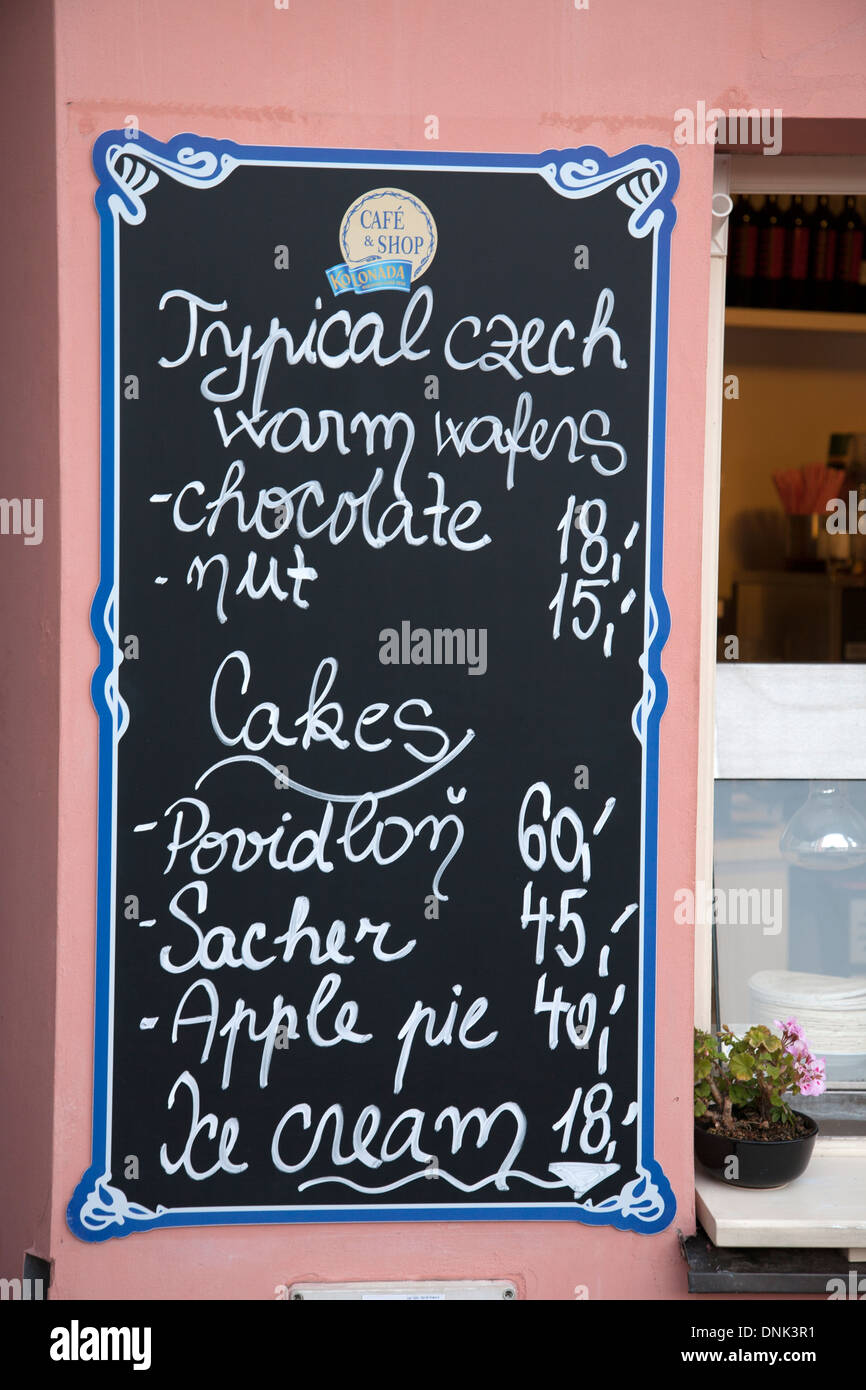 CAFÉ
& SHOP
KOLONADA
Typical czech
warm wafers
- chocolate 18,-
- nut 15,-
Cakes
- Povidloň 60,-
- Sacher 45,-
- Apple pie 40,-
Ice cream 18,-
alamy
alamy
Image ID: DNK3R1
www.alamy.com